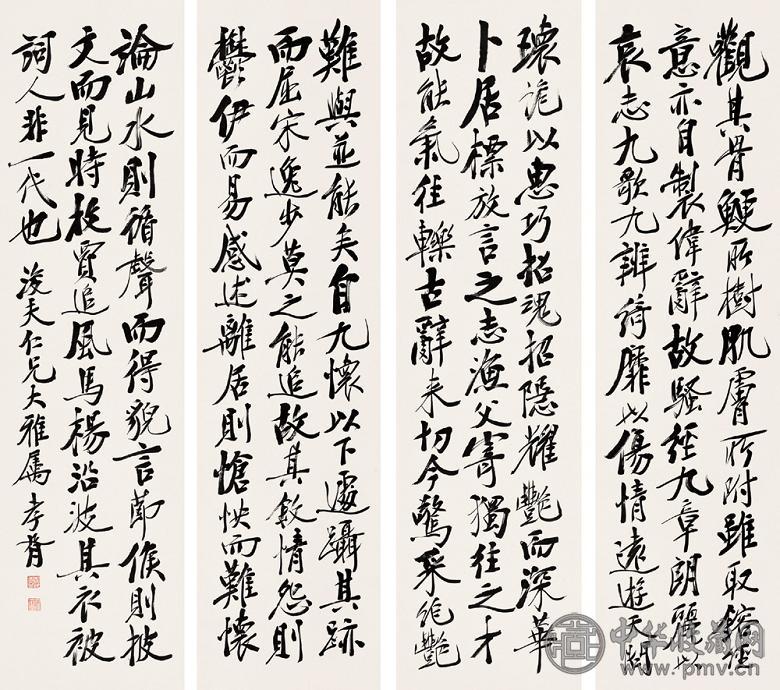 觀其骨鯁所樹肌膚所附雖取鎔經
意亦自製偉辭故騷經九章朗麗以
哀志九歌九辨綺靡以傷情遠遊天問
瓌詭以惠巧招魂招隱耀豔而深華
卜居標放言之志漁父寄獨往之才
故能氣往轢古辭来切今驚采絕豔
難與並能矣自九懷以下遽躡其跡
而屈宋逸步莫之能追故其敘情怨則
鬱伊而易感述離居則愴怏而難懷
論山水則循聲而得貌言節候則披
文而見時枚賈追風馬楊沿波其衣被
詞人非一代也 浚夫仁兄大雅属 孝胥
中华收藏网
www.pmv.cn